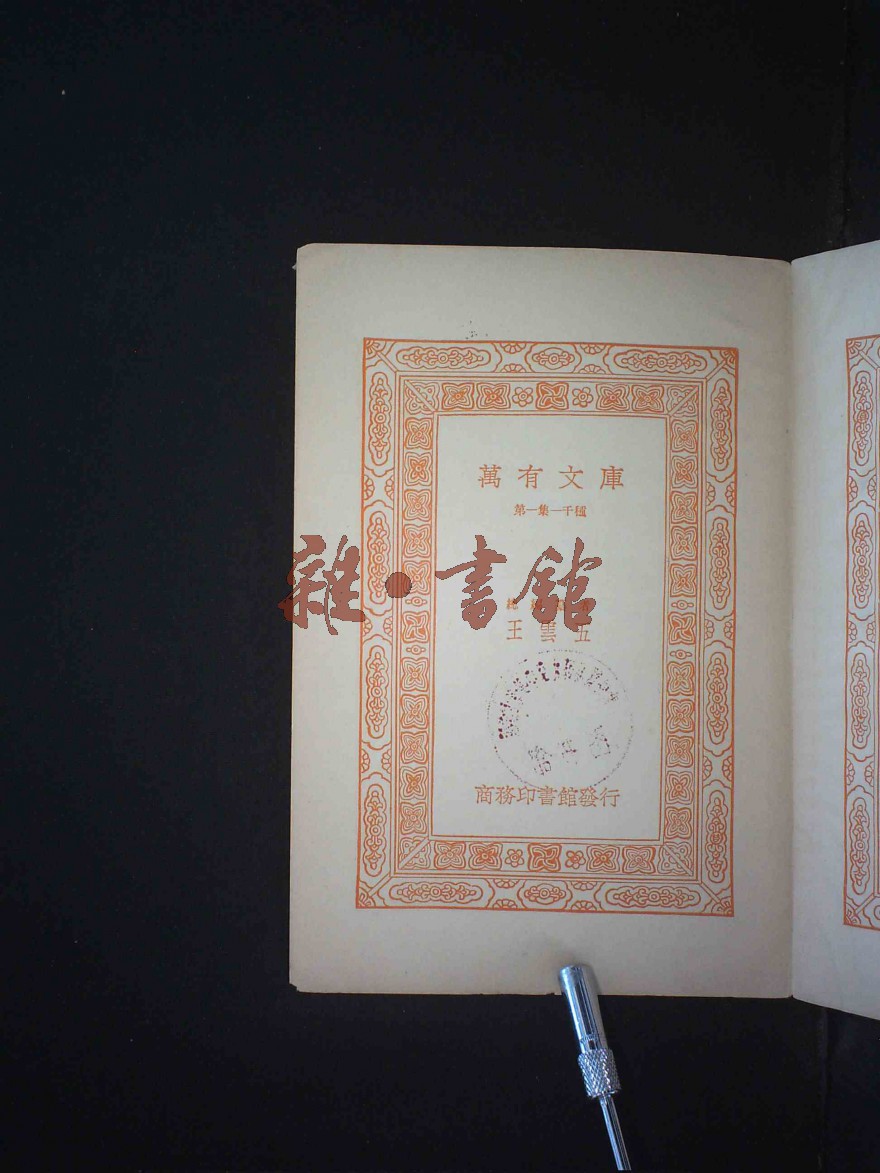 萬有文庫
第一集一千種
雜·書館
王雲五
商務印書館發行